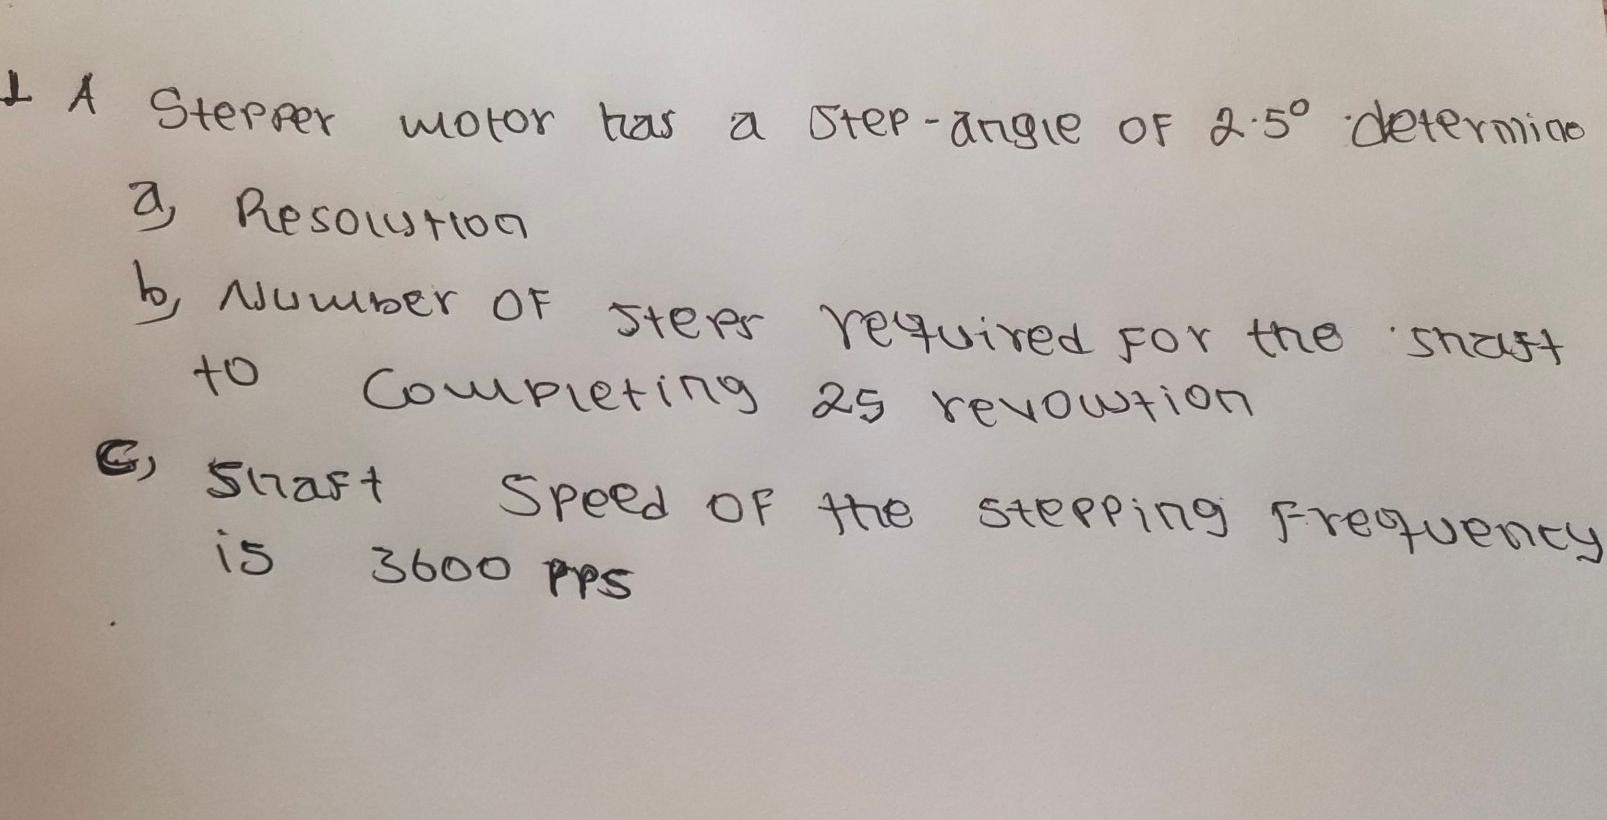 1 A Stepper motor has a step-angle of 2.5° determine
a, Resolution
b, Number of steps required for the shaft
to completing 25 revolution
c, Shaft Speed of the stepping frequency
is 3600 PPS